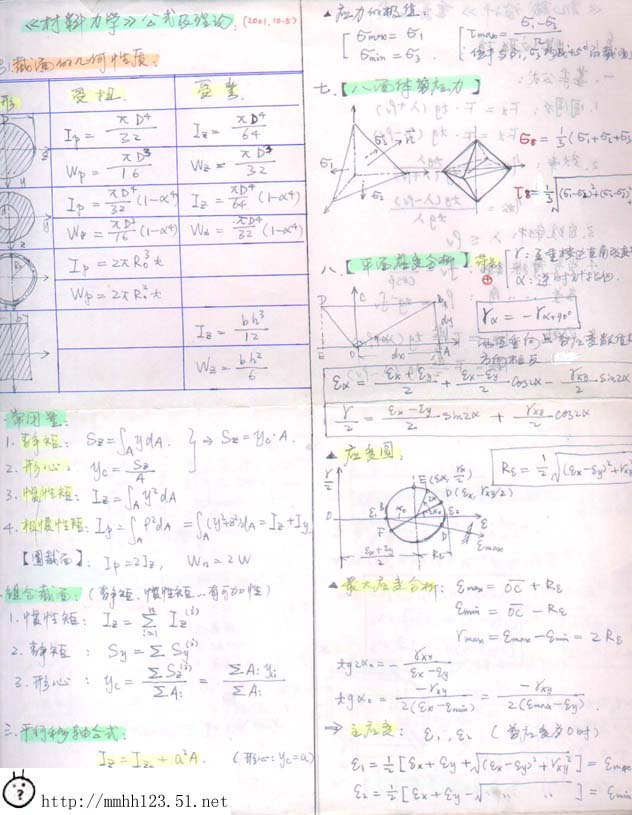 《材料力学》公式及理论: (2001.10.5)
截面的几何性质:
形 受扭 受弯
Ip = πD⁴/32 Iz = πD⁴/64
Wp = πD³/16 Wz = πD³/32
Ip = πD⁴/32 (1-α⁴) Iz = πD⁴/64 (1-α⁴)
Wp = πD³/16 (1-α⁴) Wz = πD⁴/32 (1-α⁴)
Ip = 2πR₀³t
Wp = 2πR₀²t
Iz = bh³/12
Wz = bh²/6
常用量:
1. 静矩: Sz = ∫A ydA. } ⇒ Sz = yc·A.
2. 形心: yc = Sz/A
3. 惯性矩: Iz = ∫A y²dA
4. 极惯性矩: Ip = ∫A ρ²dA = ∫A (y²+z²)dA = Iz + Iy
【圆截面】: Ip = 2Iz, Wn = 2W
组合截面: (静矩.惯性矩...有可加性)
1. 惯性矩: Iz = Σ Iz⁽ⁱ⁾
2. 静矩: Sy = Σ Sy⁽ⁱ⁾
3. 形心: yc = ΣSz⁽ⁱ⁾/ΣAi = ΣAi yi/ΣAi
三.平行移轴公式:
Iz = Izc + a²A. (形心: yc = a)
▲应力的极值:
σmax = σ1
σmin = σ3.
τmax = (σ1-σ3)/2
七.【八面体等应力】
σ1 σ3 σ2 n
σ8 = 1/3 (σ1+σ2+σ3
τ8 = 1/3 √(σ1-σ2)²+(σ2-σ3)²
八.【平面应变分析】
γ: 直角
α: 逆时针
D C B E O A dx dy
γα = -γα+90°
εα = (εx+εy)/2 + (εx-εy)/2 cos2α - γxy/2 sin2α
γ/2 = (εx-εy)/2 sin2α + γxy/2 cos2α
▲应变圆:
Rε = 1/2 √(εx-εy)²+γx
γ/2 E(εx, γx/2) D(εx, γxy/2) ε εmax
(εx+εy)/2 Rε
▲最大应变分析: εmax = OC + Rε
εmin = OC - Rε
γmax = εmax - εmin = 2Rε
tg2α₀ = - γxy/(εx-εy)
tgα₀ = -γxy/2(εx-εmin) = -γxy/2(εmax-εy)
⇒ 主应变: ε1, ε2 (剪应变为0时)
ε1 = 1/2 [εx+εy+√(εx-εy)²+γxy²] = εmax
ε2 = 1/2 [εx+εy-√ 〃 〃 ] = εmin
http://mmhh123.51.net